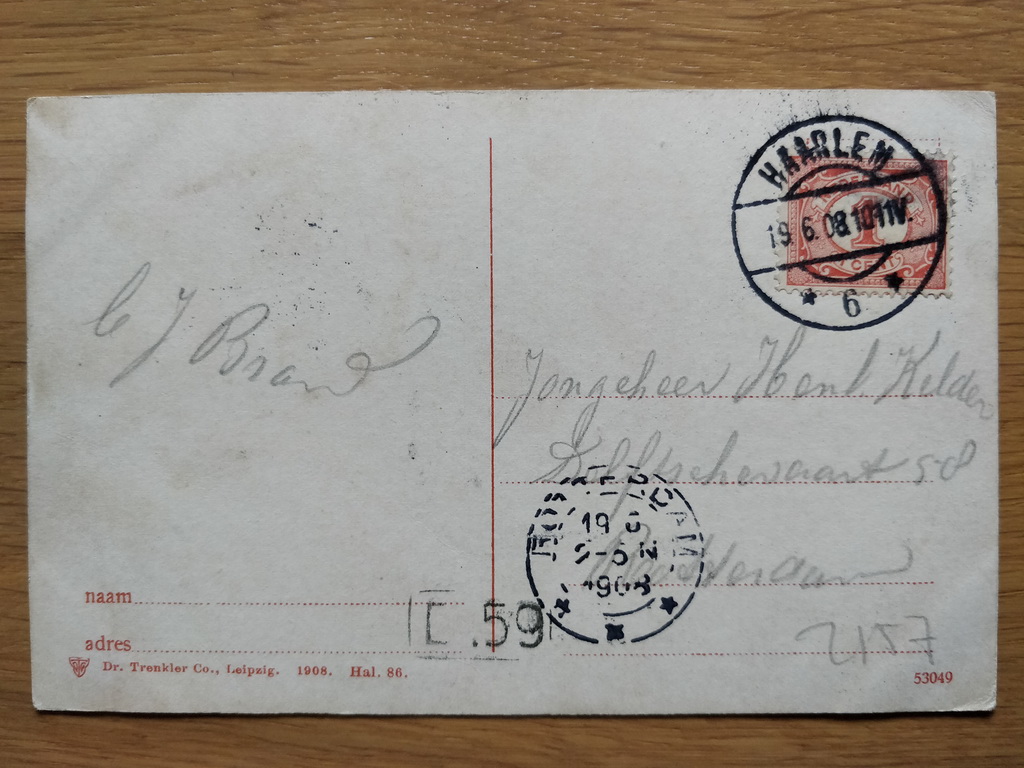 HAARLEM
NEDERLAND
19.6.08.1011V
1
CENT
6
C J Brand
Jongeheer Henl. Kelder
Delftschevaart 58
Rotterdam
ROTTERDAM
19 6
5-6 N
1908
naam
E.59
adres
2157
Dr. Trenkler Co., Leipzig. 1908. Hal. 86.
53049